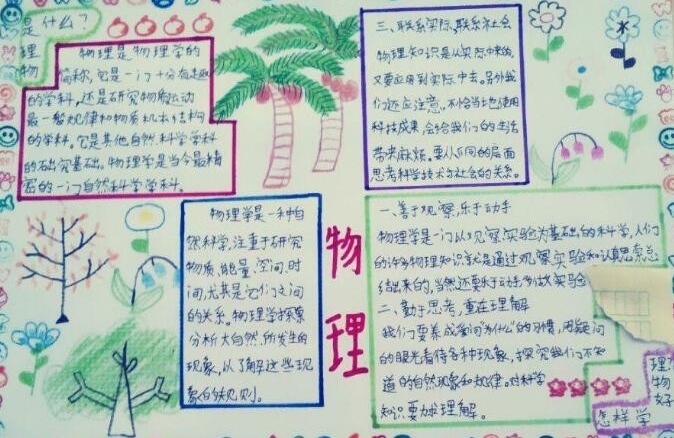 物理是什么?
物理是物理学的
简称,它是一门十分有趣
的学科。还是研究物质运动
最一般规律和物质机本结构
的学科。它是其他自然科学学科
的础究基础。物理学是当今最精
密的一门自然科学学科。
三、联系实际,联系社会
物理知识是从实际中来的,
又要应用到实际中去。另外我
们还应注意,不恰当地使用
科技成果,会给我们的生活
带来麻烦。要从不同的层面
思考科学技术与社会的关系。
物理学是一种自
然科学,注重于研究
物质,能量,空间,时
间,尤其是它们之间
的关系。物理学探索
分析大自然所发生的
现象,以了解这些现
象的规则。
物理
一、善于观察,乐于动手
物理学是一门以观察实验为基础的科学,人们
的许多物理知识就是通过观察实验和认真思索总
结出来的,当然还要乐于动手多做实验
二、勤于思考,重在理解
我们要养成爱问为什么的习惯,用疑问
的眼光看待各种现象,探究我们不知
道的自然现象和规律。对科学
知识要做理解。
怎样学
好物理